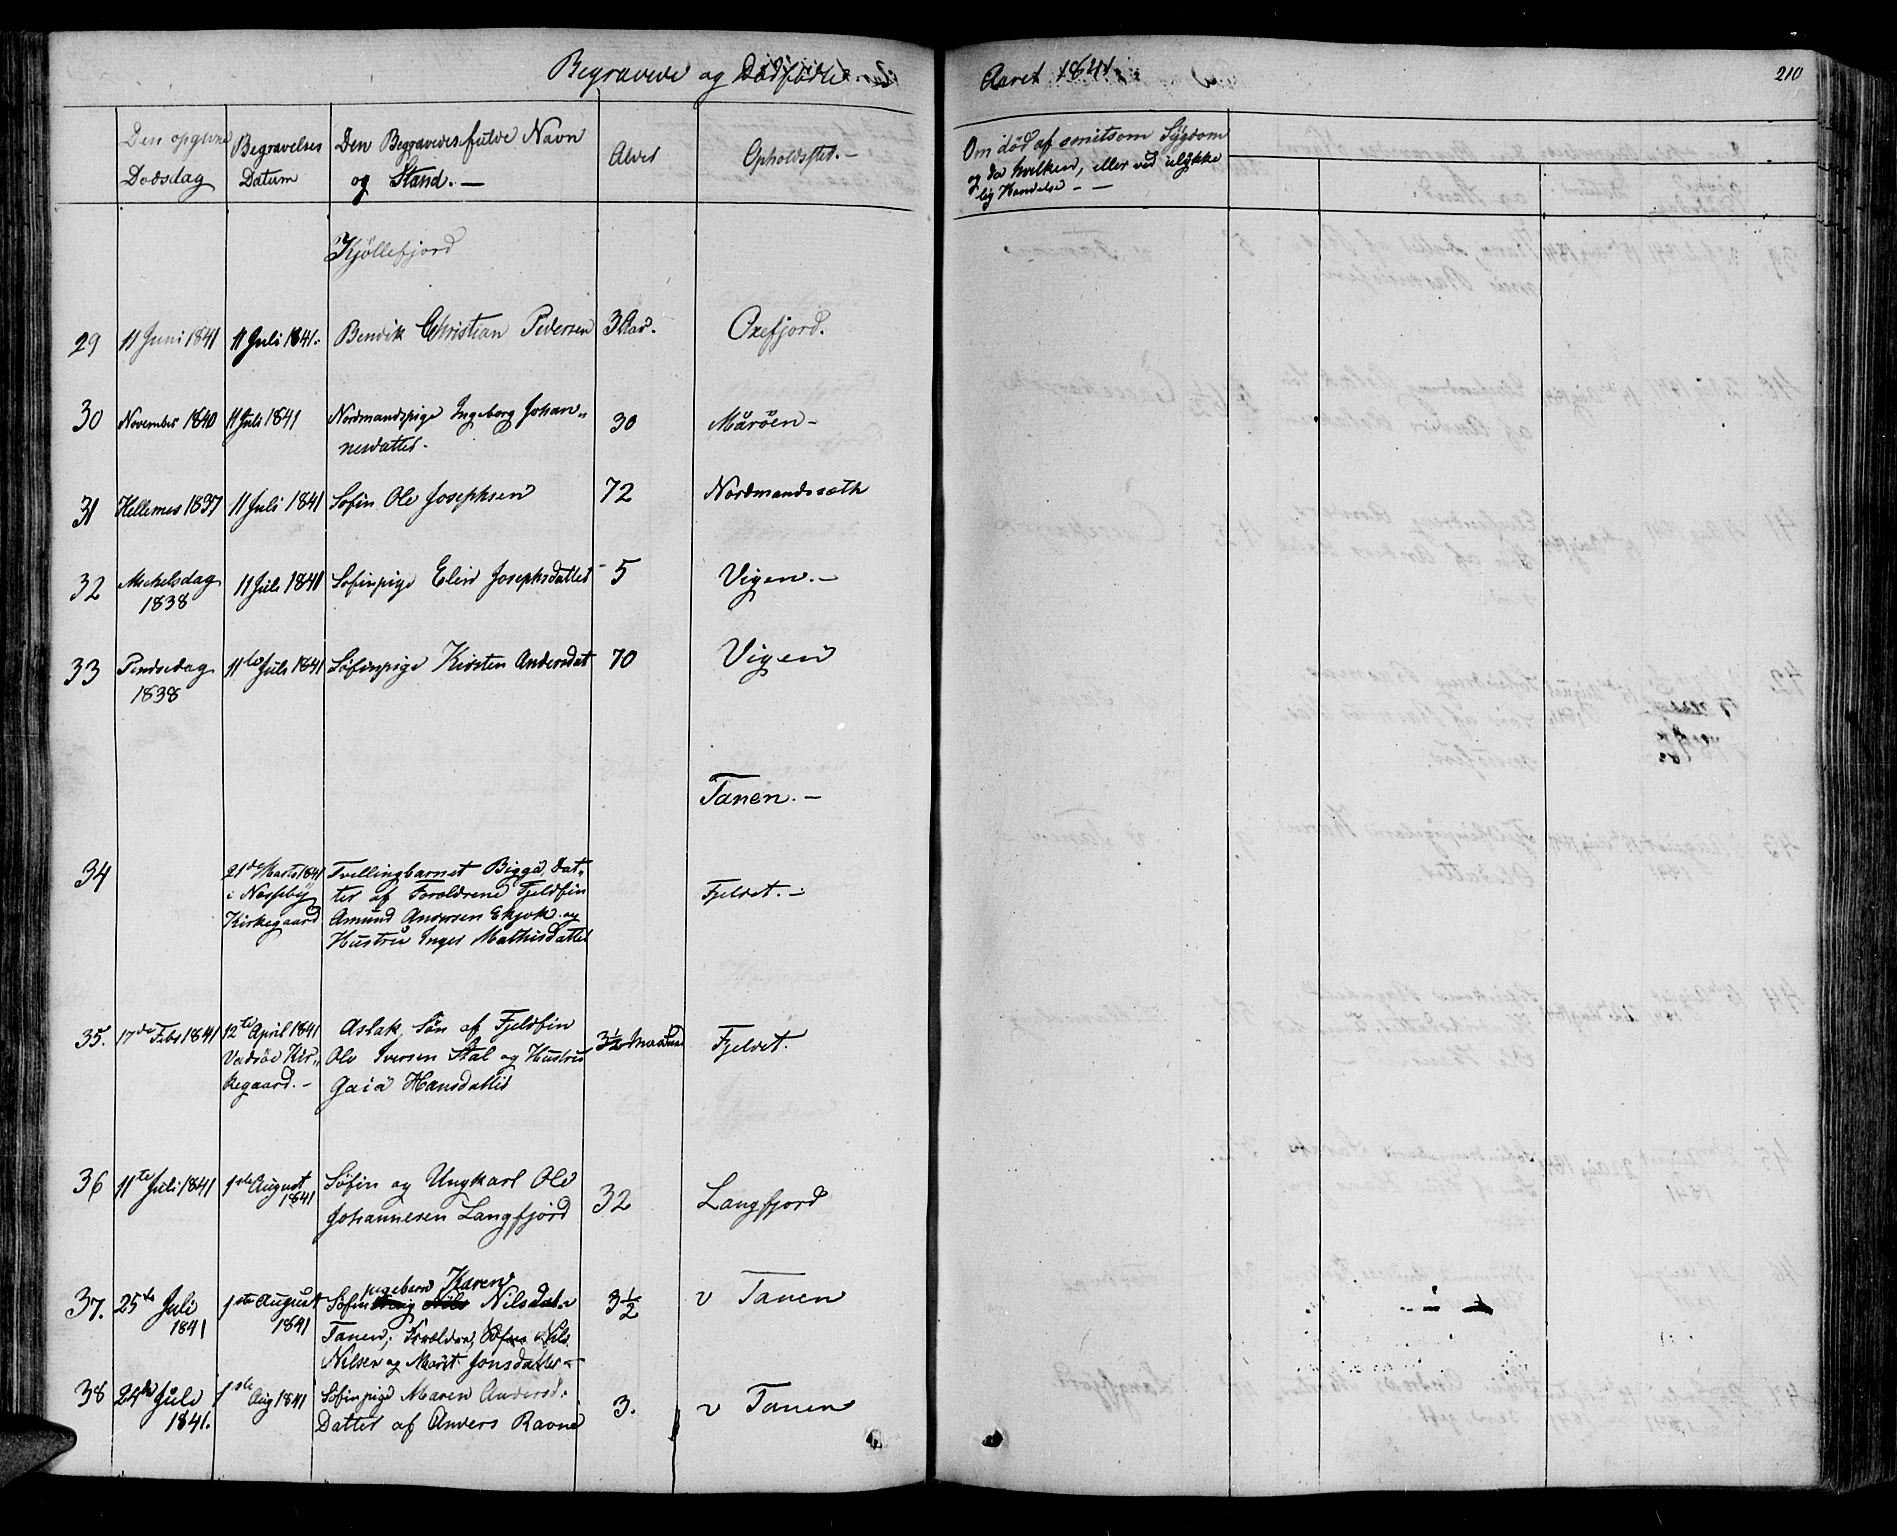 Begravede og Dødfødte
Aaret 1841
210
Den opgivne Dødsdag
Begravelses Datum
Den Begravedes fulde Navn og Stand. —
Alder
Opholdsted. —
Om død af smitsom Sÿgdom
og da hvilken, eller ved ulÿkke
lig Handelse — —
Kjöllefjord
29 11 Juni 1841 11 Juli 1841. Bendik Christian Pedersen 3 Aar. Oxefjord.
30 November 1840 11 Juli 1841 Nordmandspige Ingeborg Johan„ 30 Måröen —
nesdatter.
31 Hellemes 1837 11 Juli 1841 Söfin Ole Josephsen 72 Nordmandssæth
32 Mickelsdag 11 Juli 1841 Søfinpige Elen Josephsdatter 5 Vigen. —
1838
33 Pindsedag 11te Juli 1841 Söfinpige Kirsten Andersdat 70 Vigen
1838
Tanen. —
34 21de Marts 1841 Tvillingbarnet Bigga, Dat„
i Nesseby ter af Foreldrene Fjeldfin Fjeldet. —
Kirkegaard Amund Andersen Ekjok og
Hustru Inger Mathisdatter
35. 17de Febr 1841 12te April 1841 Aslak, Sön af Fjeldfin 3½ Maaned Fjeldet.
Vadsöe Kir„ Ole Iversen Stal og Hustru
kegaard. — Gaia Hansdatter
36 11te Juli 1841 1ste August Söfin og Ungkarl Ole 32 Langfjord
1841 Johannesen Langfjord
37. 25de Juli 1ste August Söfin pigebarn Karen Nilsdat. 3½ v Tanen
1841 1841 Tanen; Forældre, Nils
Nilsen og Marit Jonsdatter —
38 24de Juli 1ste Aug 1841 Söfinpige Maren Andersd. 3. v Tanen
1841. Datter af Anders Ravna